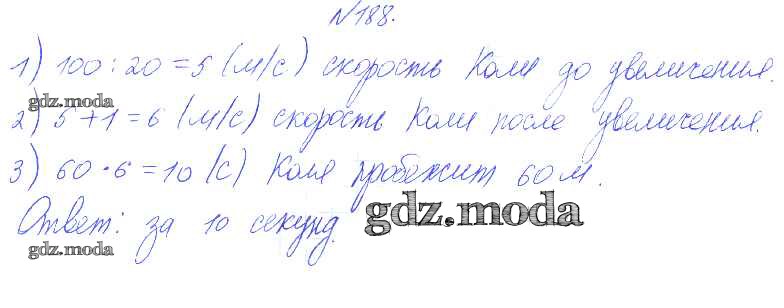 №188.
1) 100 : 20 = 5 (м/с) скорость Коли до увеличения.
gdz.moda
2) 5 + 1 = 6 (м/с) скорость Коли после увеличения.
3) 60 · 6 = 10 (с) Коля пробежит 60 м.
Ответ: за 10 секунд.
gdz.moda
gdz.moda